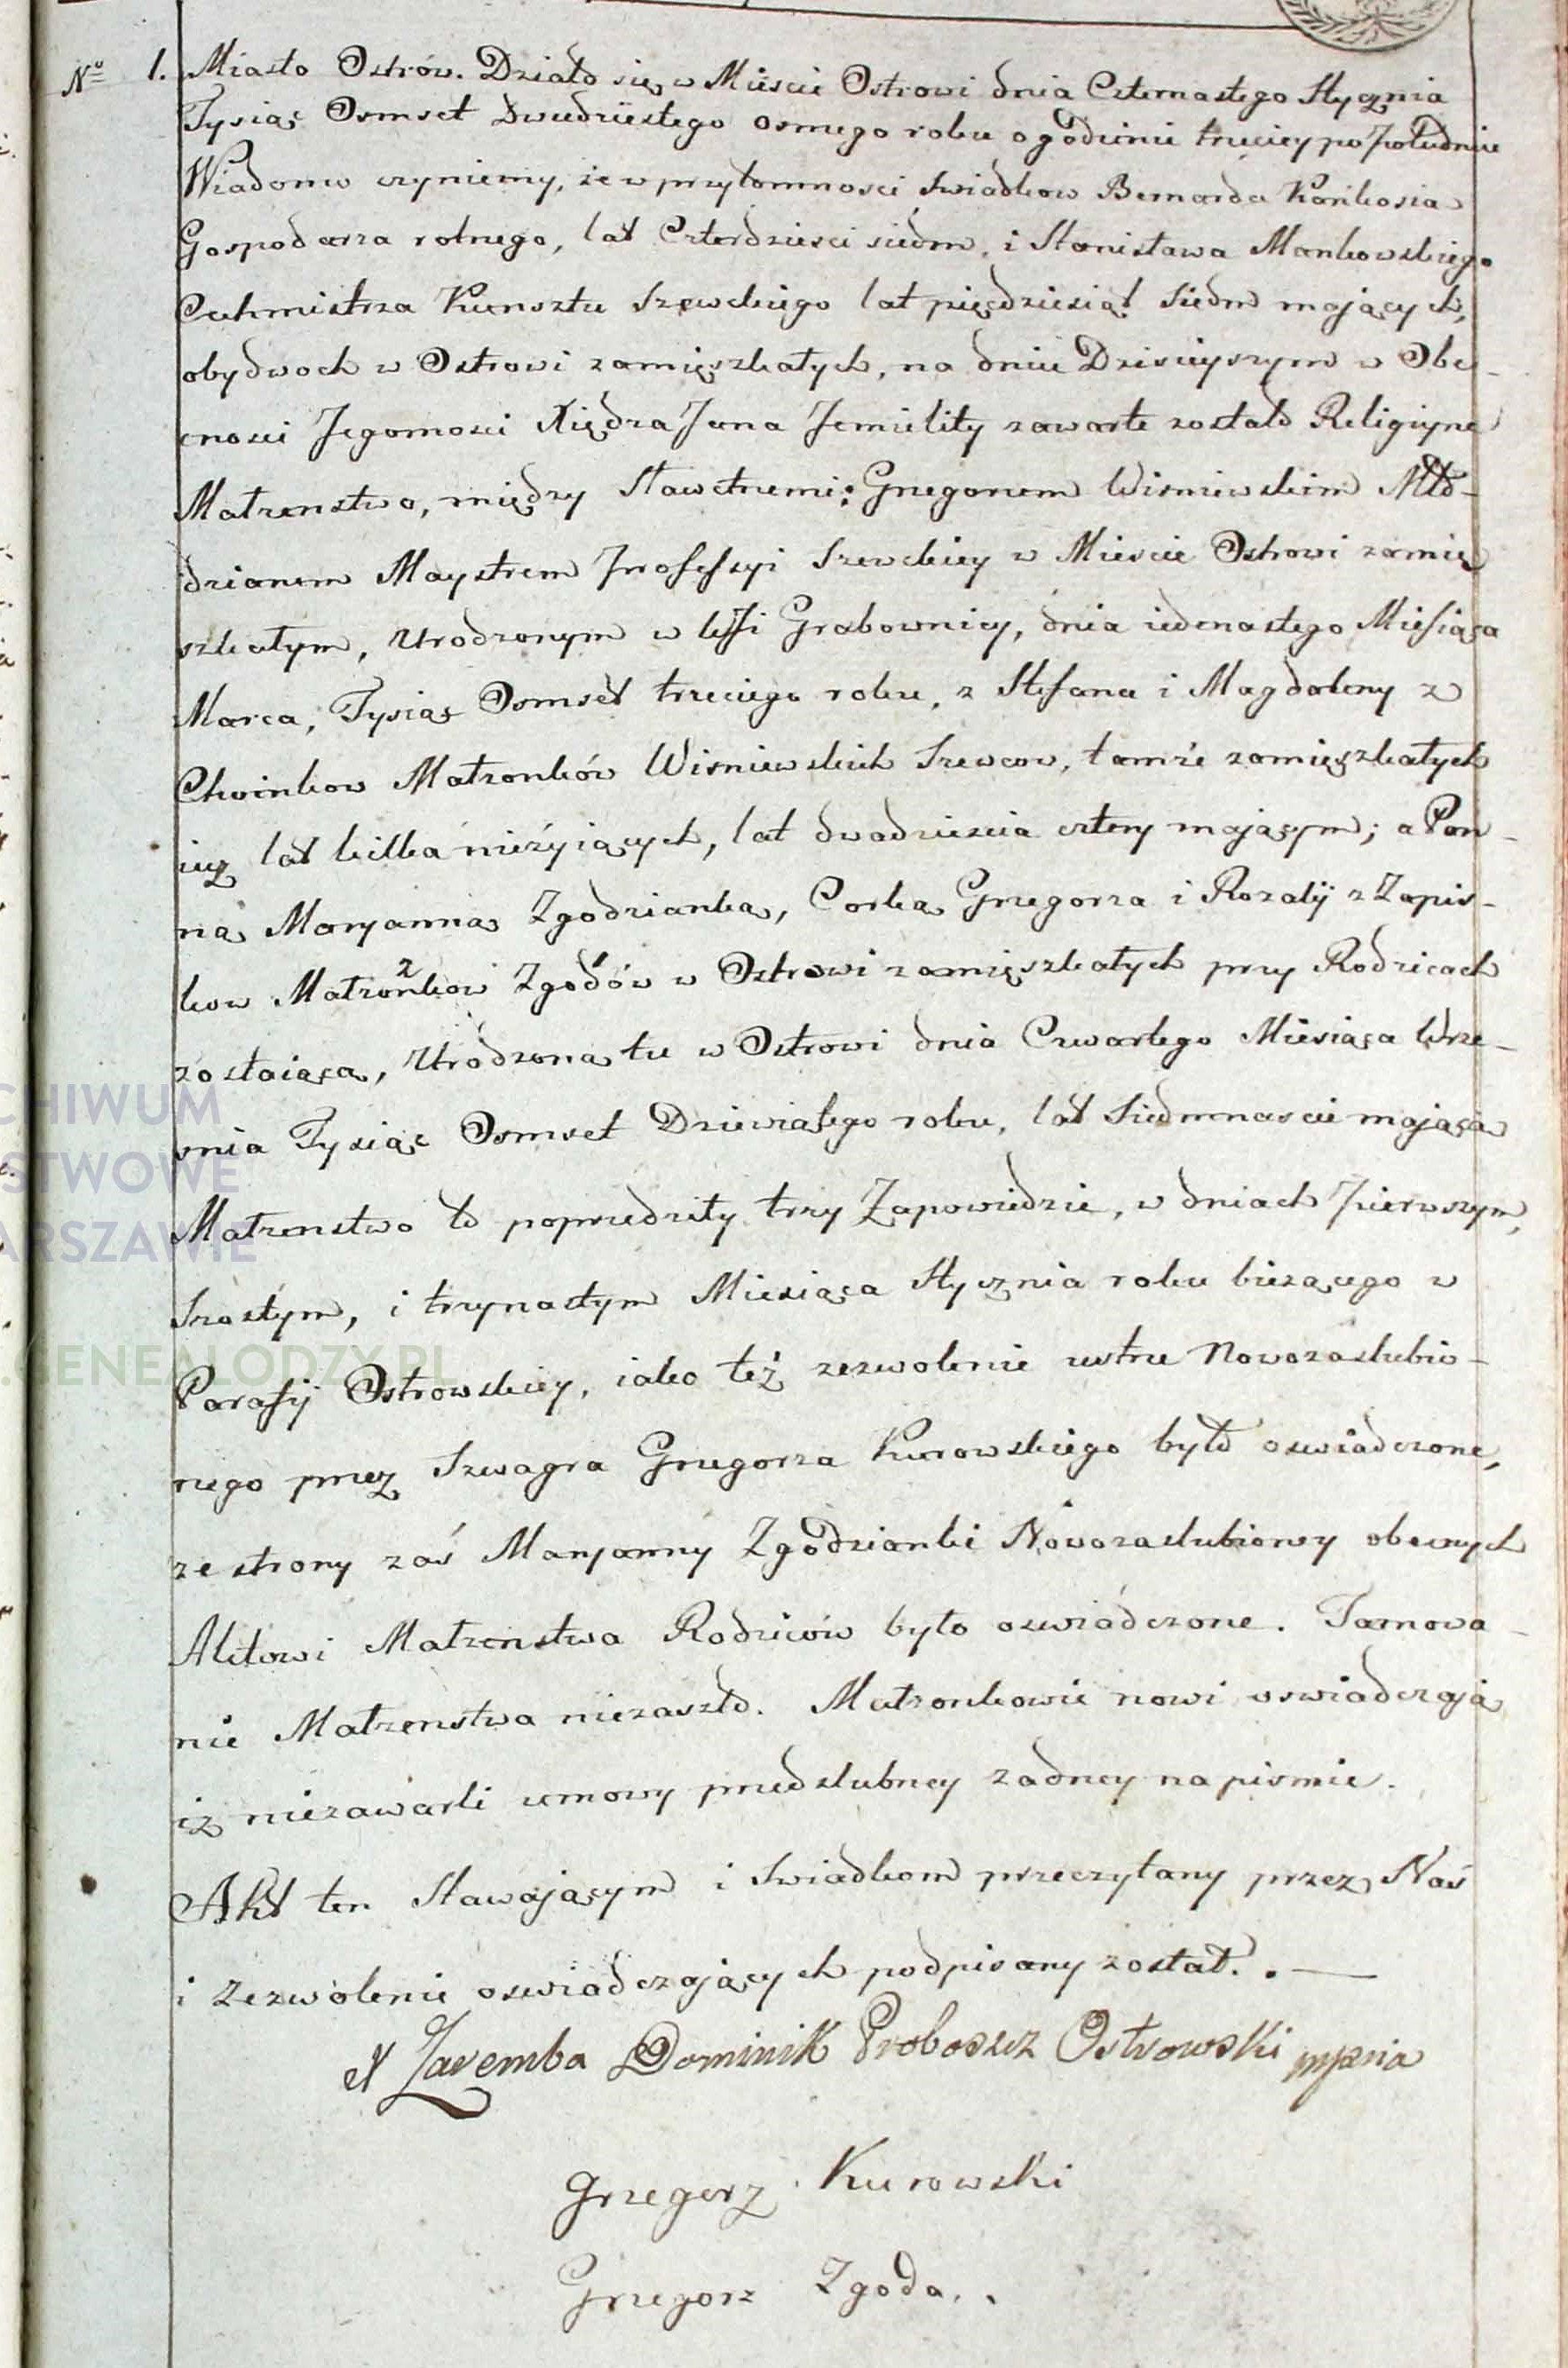 Nº 1. Miasto Ostrów. Działo się w Mieście Ostrowi dnia Czternastego Stycznia
Tysiąc Osmset Dwudziestego osmego roku o godzinie trzeciey po Południe
Wiadomo czyniemy, że w przytomnosci Swiadkow Bernarda Kańkosia
Gospodarza rolnego, lat Czterdziesci siedm, i Stanisława Mankowskiego
Cechmistrza Kunsztu Szewckiego lat pięcdziesiąt siedm mających,
obydwoch w Ostrowi zamięszkałych, na dniu Dzisieyszym w Obe-
cnosci Jegomosci Xiędza Jana Jemielity zawarte zostało Religiyne
Małzenstwo, między Sławetnemi: Grzegorzem Wisniewskim Mło-
dzianem Maystrem Professyi Szewckiey w Miescie Ostrowi zamię
szkałym, Urodzonym w Wsi Grabownicy, dnia iedenastego Miesiąca
Marca, Tysiąc Osmset trzeciego roku, z Stefana i Magdaleny z
Choinkow Małzonków Wisniewskich Szewcow, tamże zamięszkałych
iuz lat kilka nieżyiących, lat dwadziescia cztery mającym; a Pan-
ną Maryanną Zgodzianką, Corką Grzegorza i Rozalij z Zapis-
kow Małzonkow Zgodów w Ostrowi zamięszkałych przy Rodzicach
zostaiącą, Urodzoną tu w Ostrowi dnia Czwartego Miesiąca Wrze-
snia Tysiąc Osmset Dziewiątego roku, lat Siedmnascie mającą
Małzenstwo to poprzedziły trzy Zapowiedzie, w dniach Pierwszym,
Szostym, i trzynastym Miesiąca Stycznia roku bieżącego w
Parafij Ostrowskiey, iako też zezwolenie ustne Nowozaslubio-
nego przez Szwagra Grzegorza Kurowskiego było oswiadczone,
ze strony zaś Maryanny Zgodzianki Nowozaslubioney obecnych
Aktowi Małzenstwa Rodziców było oswiadczone. Tamowa-
nie Małzenstwa niezaszło. Małzonkowie nowi oswiadczają
iż niezawarli umowy przedslubney zadney na pismie.
Akt ten Stawającym i Swiadkom przeczytany przez Nas
i Zezwolenie oswiadczających podpisany został. . —
X Zaremba Dominik Proboszcz Ostrowski mpria
Grzegorz Kurowski
Grzegorz Zgoda . .
ARCHIWUM
PAŃSTWOWE
WARSZAWIE
.GENEALODZY.PL